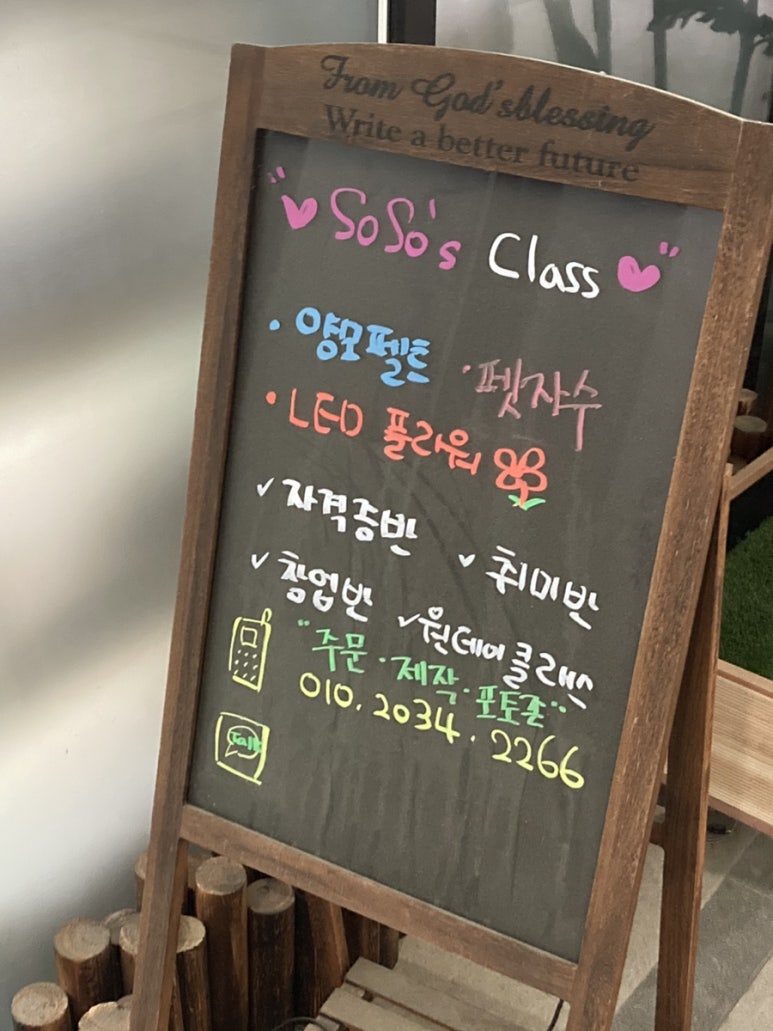 From God'sblessing
Write a better future
SoSo's Class
· 양모펠트 · 펫자수
· LED 플라워
✓ 자격증반 ✓ 취미반
✓ 창업반 ✓ 원데이클래스
"주문·제작·포토존"
010.2034.2266
Talk